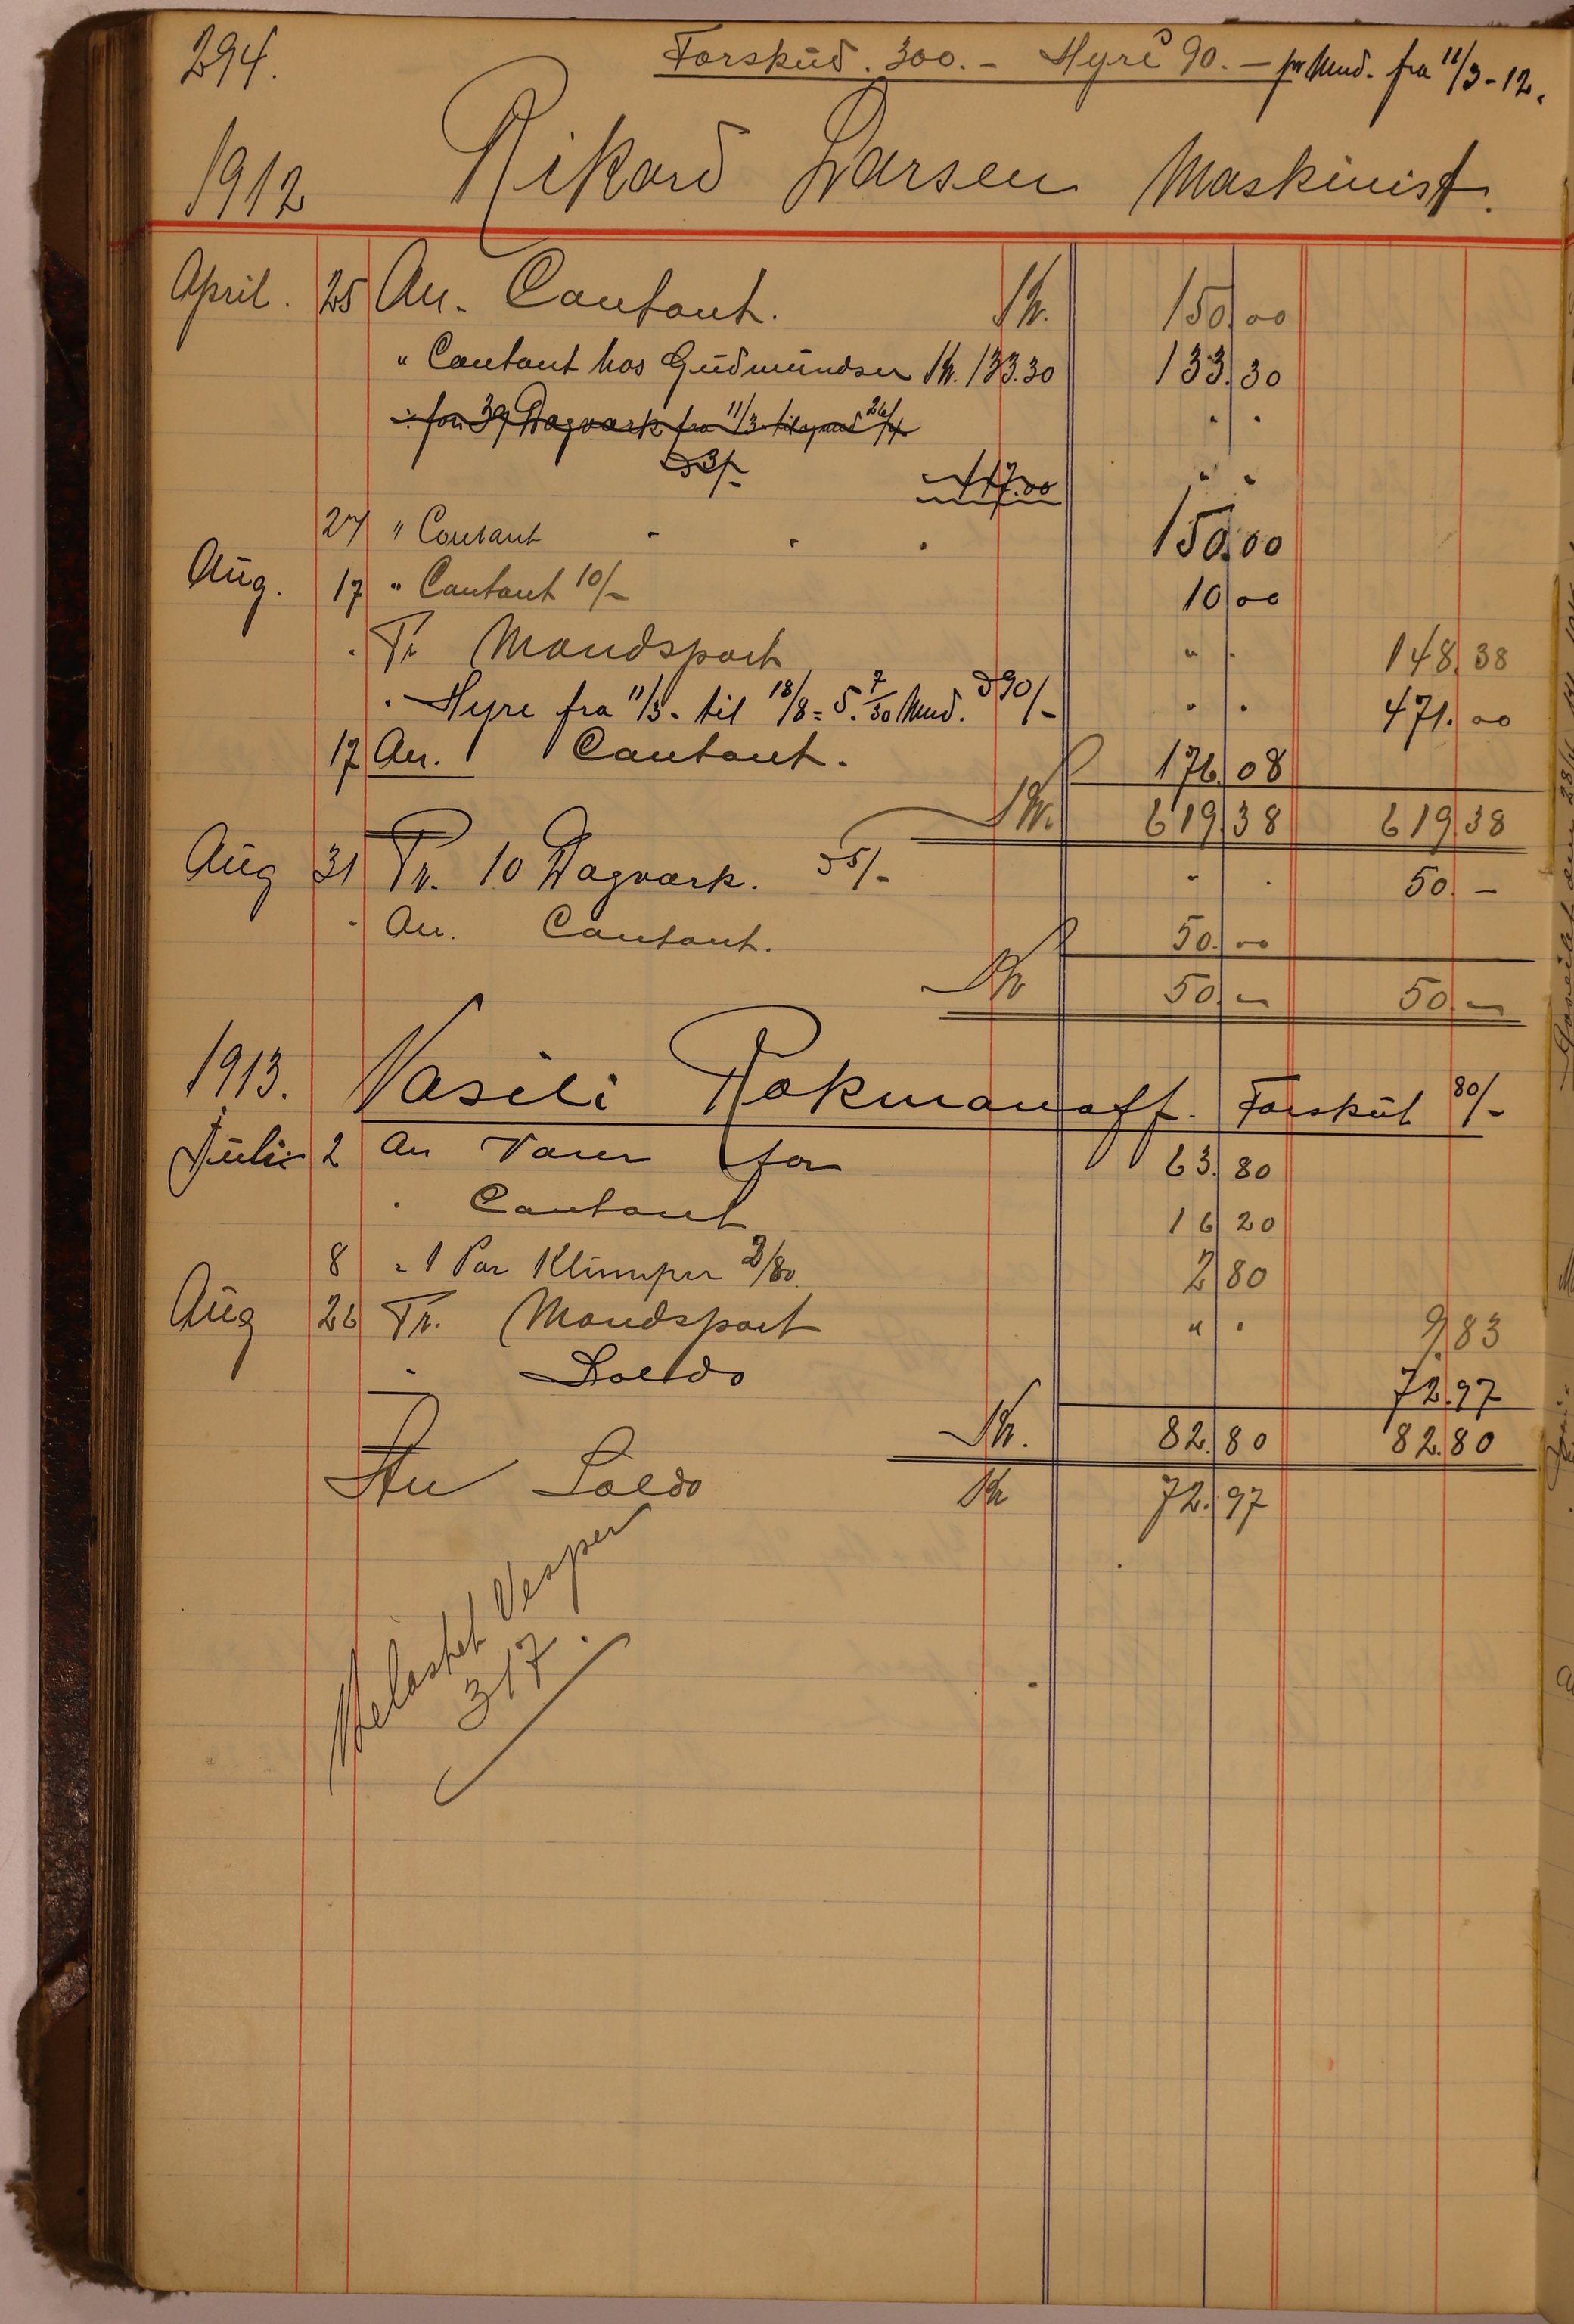 294. Forskud. 300.- Hyre 90.- pr Mnd. fra 11/3-12.
1912 Rikard Larsen Maskinist.
April. 25 An. Contant. Kr. 150.00
" Contant hos Gudmundsen Kr. 133.30 133.30
for 39 Dagværk fra 11/3 til og med 26/4
à 3/- 117.00
27 " Contant 150.00
Aug. 17 " Contant 10/- 10.00
Pr Mandspart " . 148.38
. Hyre fra 11/3- til 18/8 = 5. 7/30 Mnd. à 90/- " . 471.00
17 An. Contant. 176.08
Kr. 619.38 619.38
Aug 31 Pr. 10 Dagværk. à 5/- - . 50.-
. An. Contant. 50.00
Kr 50.- 50.-
1913. Vasili Rokmanoff. Forskut 80/-
Juli 2 An Varer for 63.80
. Contant 16 20
8 " 1 Par Klumper 2/80. 2 80
Aug 26 Pr. Mandspart " . 9.83
. Saldo 72.97
Kr. 82.80 82.80
An Saldo Kr 72.97
Belastet Vesper
317.